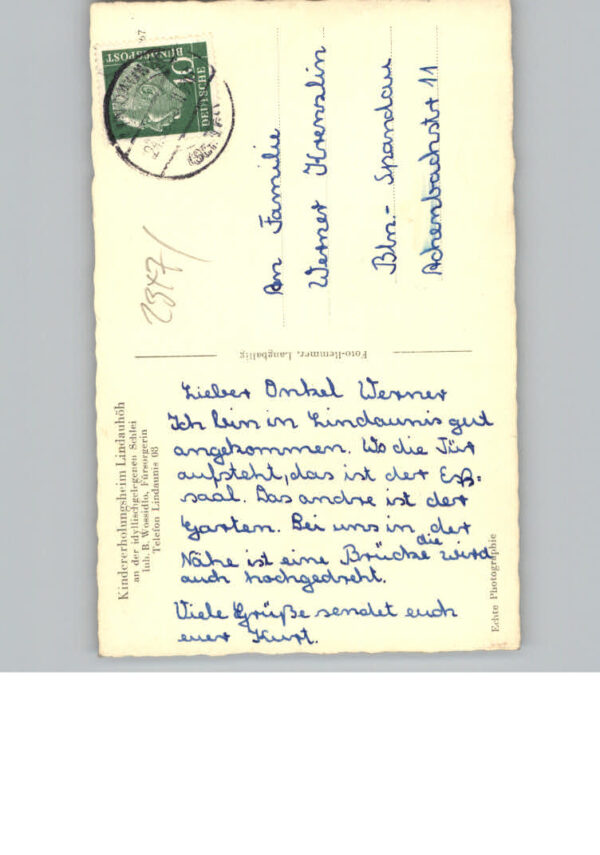 Kindererholungsheim Lindauhöh
an der idyllischgelegenen Schlei
Inh. B. Wossidlo, Fürsorgerin
Telefon Lindaunis 08
Lieber Onkel Werner
Ich bin in Lindaunis gut
angekommen. Wo die Tür
aufsteht, das ist der Eß-
saal. Das andre ist der
Garten. Bei uns in der
Nähe ist eine Brücke die wird
auch hochgedreht.
Viele Grüße sendet euch
euer Kurt.
Echte Photographie
Foto-Remmer, Langballig
DEUTSCHE
BUNDESPOST
10
2347/
An Familie
Werner Krenzlin
Bln.- Spandau
Achenbachstr 11